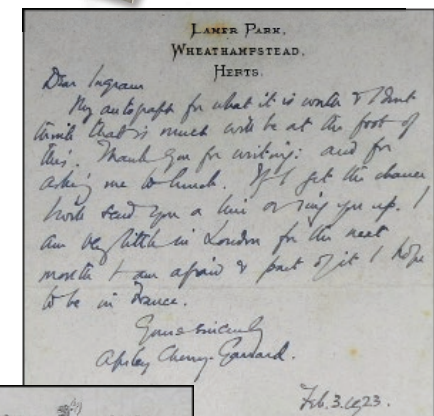 LAMER PARK,
WHEATHAMPSTEAD,
HERTS.
Dear Ingram
My autograph for what it is worth & I dont
think that is much will be at the foot of
this. Thank you for writing: and for
asking me to lunch. If I get the chance
I will send you a line or ring you up. I
am very little in London for the next
month I am afraid & part of it I hope
to be in France.
Yours sincerely
Apsley Cherry-Garrard.
Feb. 3. 1923.